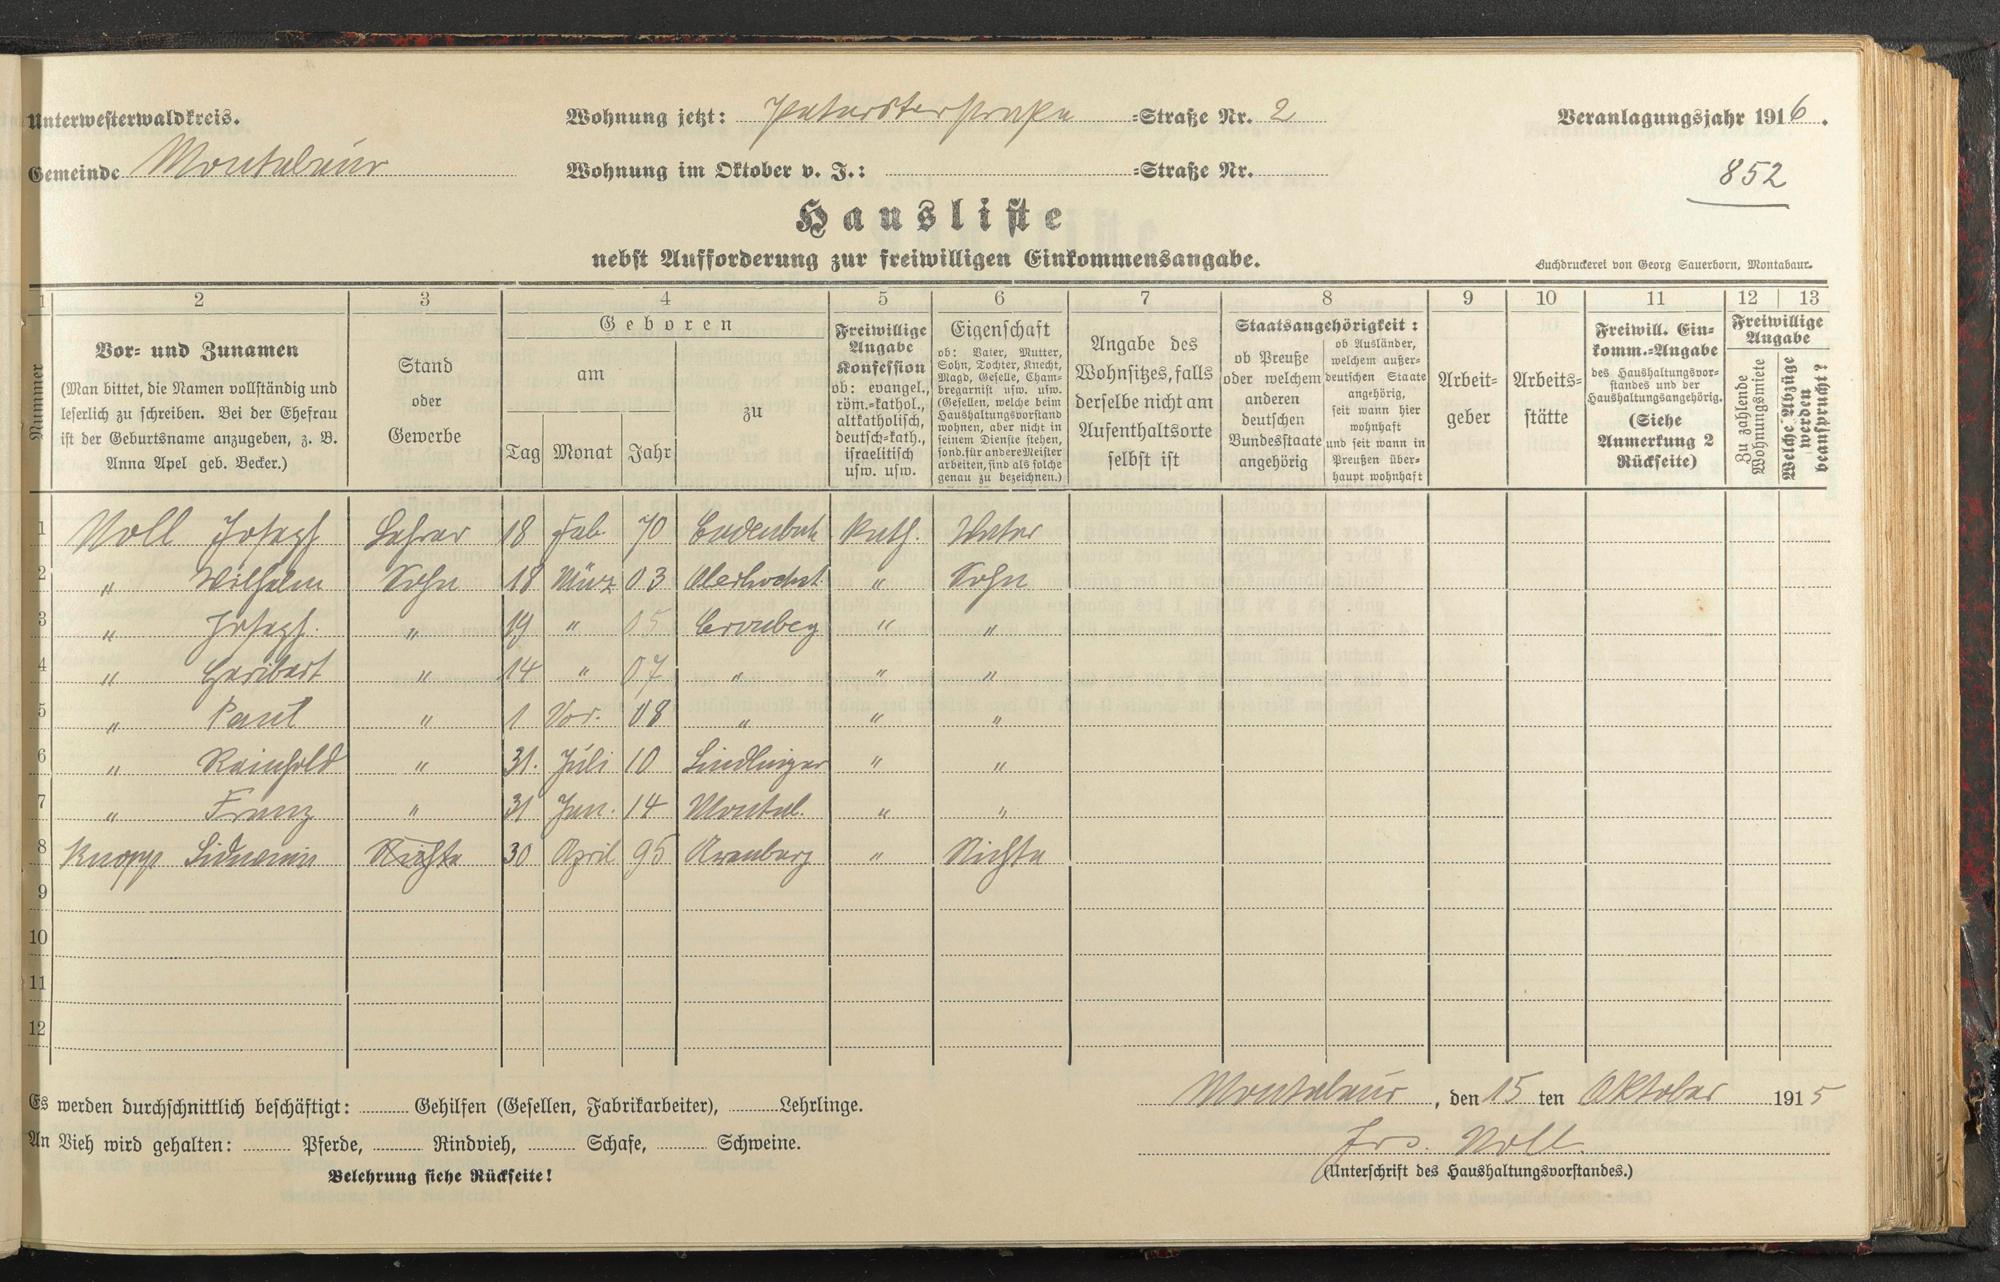 Unterwesterwaldkreis. Wohnung jetzt: Peterstorstraße =Straße Nr. 2 Veranlagungsjahr 1916.
Gemeinde Montabaur Wohnung im Oktober v. J.: =Straße Nr. 852
Hausliste
nebst Aufforderung zur freiwilligen Einkommensangabe.
Buchdruckerei von Georg Sauerborn, Montabaur.
1 2 3 4 5 6 7 8 9 10 11 12 13
Nummer
Vor= und Zunamen
(Man bittet, die Namen vollständig und
leserlich zu schreiben. Bei der Ehefrau
ist der Geburtsname anzugeben, z. B.
Anna Apel geb. Becker.)
Stand
oder
Gewerbe
Geboren
am
Tag Monat Jahr
zu
Freiwillige
Angabe
Konfession
ob: evangel.,
röm.=kathol.,
altkatholisch,
deutsch=kath.,
israelitisch
usw. usw.
Eigenschaft
ob: Vater, Mutter,
Sohn, Tochter, Knecht,
Magd, Geselle, Cham-
bregarnist usw. usw.
(Gesellen, welche beim
Haushaltungsvorstand
wohnen, aber nicht in
seinem Dienste stehen,
sond. für andere Meister
arbeiten, sind als solche
genau zu bezeichnen.)
Angabe des
Wohnsitzes, falls
derselbe nicht am
Aufenthaltsorte
selbst ist
Staatsangehörigkeit:
ob Preuße
oder welchem
anderen
deutschen
Bundesstaate
angehörig
ob Ausländer,
welchem außer-
deutschen Staate
angehörig,
seit wann hier
wohnhaft
und seit wann in
Preußen über-
haupt wohnhaft
Arbeit-
geber
Arbeits-
stätte
Freiwill. Ein-
komm.=Angabe
des Haushaltungsvor-
standes und der
Haushaltungsangehörig.
(Siehe
Anmerkung 2
Rückseite)
Freiwillige
Angabe
Zu zahlende
Wohnungsmiete
Welche Abzüge
werden
beansprucht?
1 Noll Joseph Lehrer 18 Feb. 70 Kath. Vater
2 " Wilhelm Sohn 18 März 03 Oberhöchst. " Sohn
3 " Joseph. " 19 " 05 Cronberg " "
4 " Heribert " 14 " 07 " " "
5 " Paul " 1 08 " " "
6 " Reinhold " 31. Juli 10 Sindlingen " "
7 " Franz " 31 Jan. 14 Montab. " "
8 Knopp Nichte 30 April 95 Arenberg " Nichte
9
10
11
12
Es werden durchschnittlich beschäftigt: Gehilfen (Gesellen, Fabrikarbeiter), Lehrlinge.
An Vieh wird gehalten: Pferde, Rindvieh, Schafe, Schweine.
Belehrung siehe Rückseite!
Montabaur, den 15 ten Oktober 1915
Jos. Noll.
(Unterschrift des Haushaltungsvorstandes.)